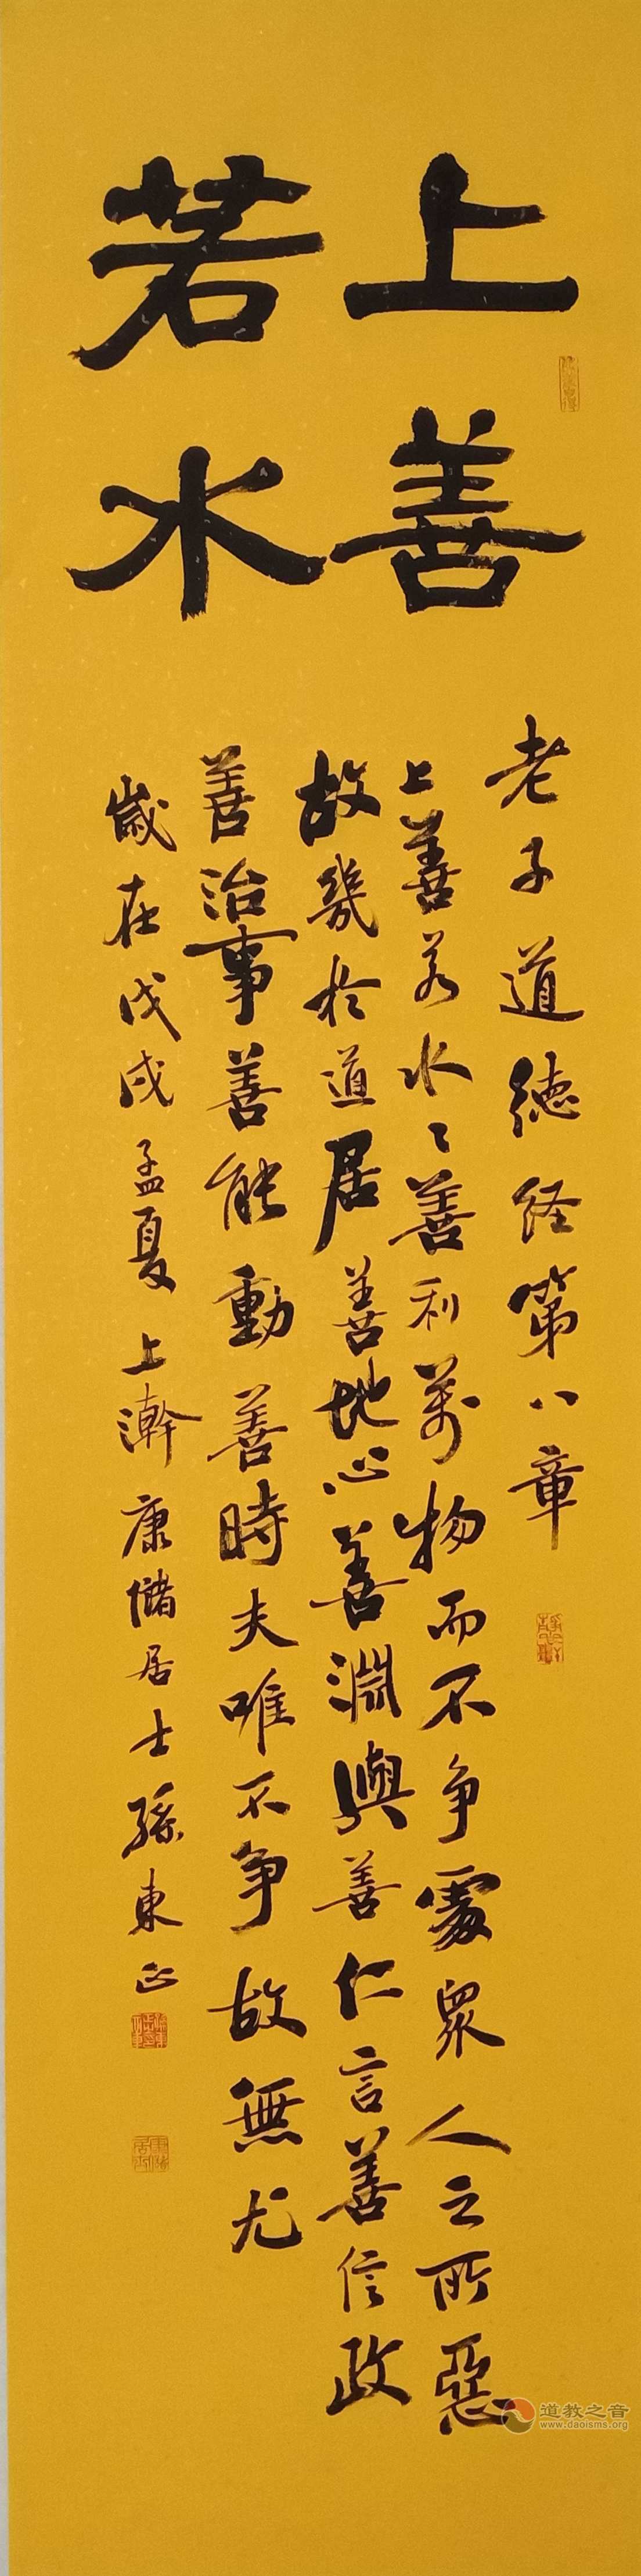 上善
若水
老子道德经第八章
上善若水〻善利萬物而不争處眾人之所惡
故幾於道居善地心善淵與善仁言善信政
善治事善能動善時夫唯不争故無尤
歲在戊戌孟夏上澣康儲居士孫東正
道教之音
www.daoisms.org